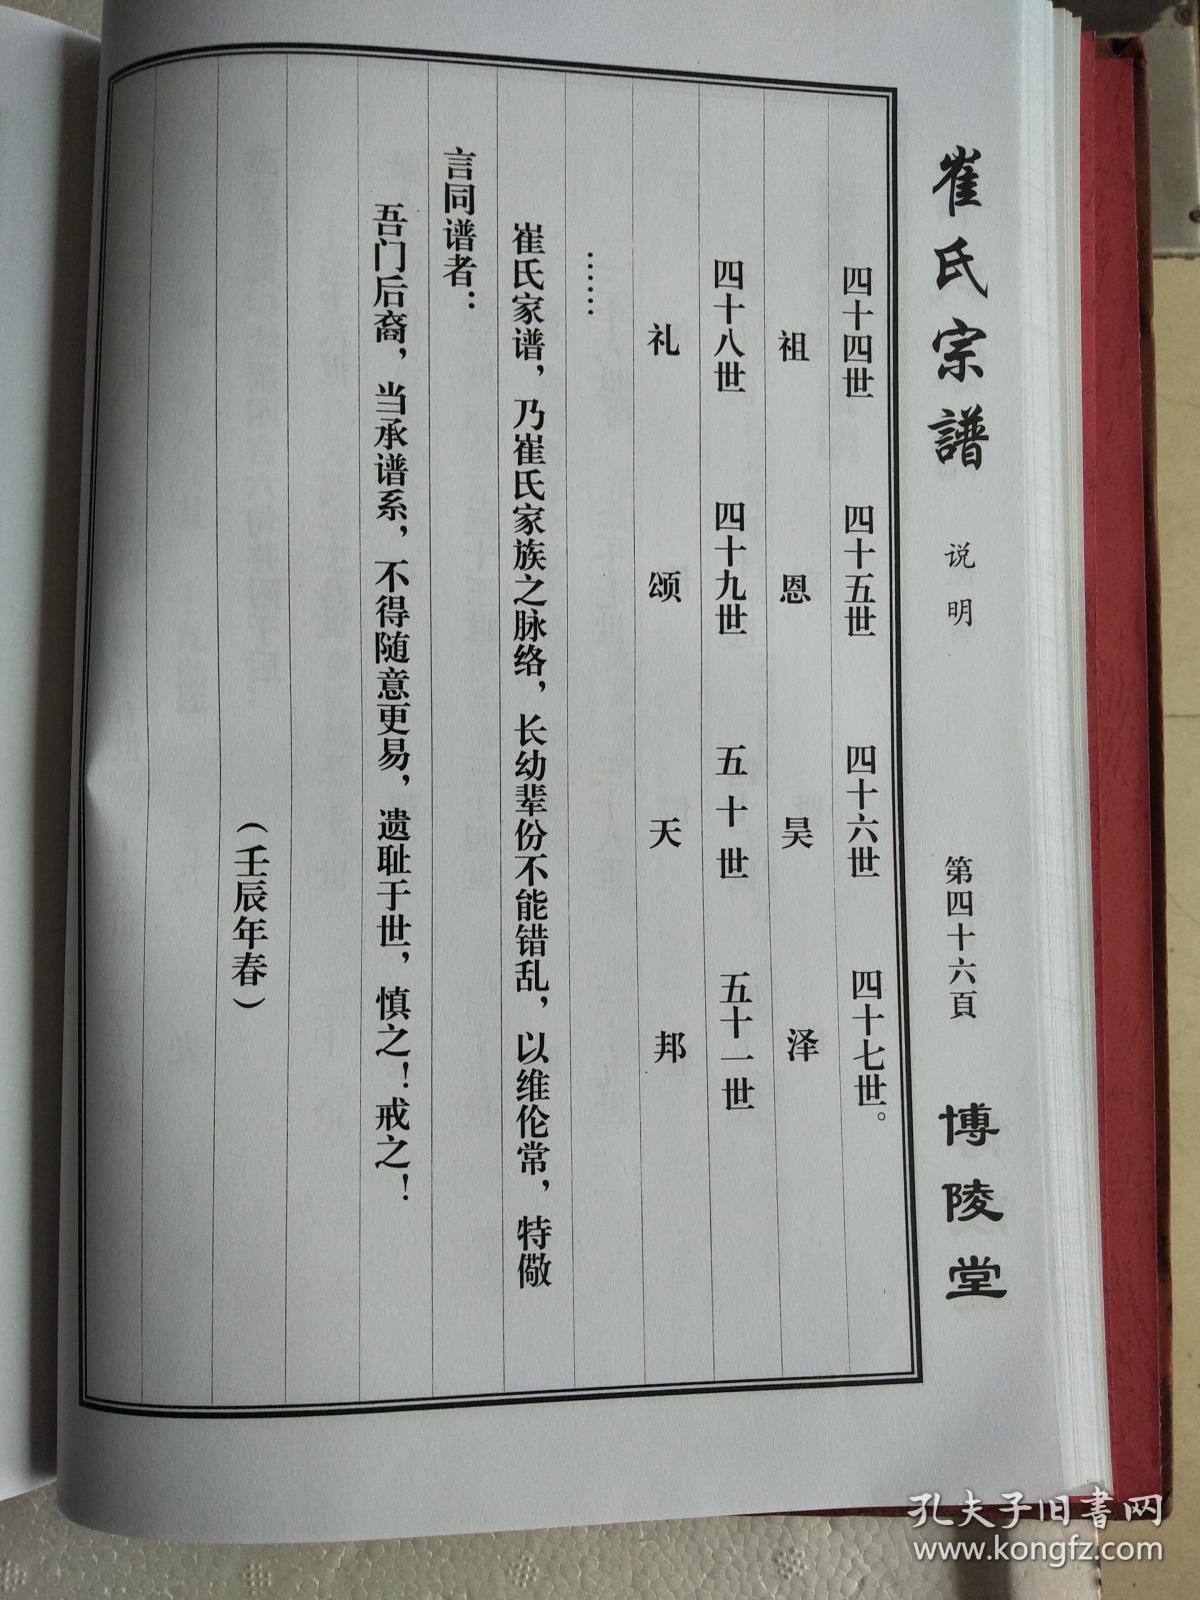 崔氏宗譜 说明 第四十六頁 博陵堂
四十四世 四十五世 四十六世 四十七世。
祖 恩 昊 泽
四十八世 四十九世 五十世 五十一世
礼 颂 天 邦
……
崔氏家谱，乃崔氏家族之脉络，长幼辈份不能错乱，以维伦常，特儆
言同谱者：
吾门后裔，当承谱系，不得随意更易，遗耻于世，慎之！戒之！
（壬辰年春）
孔夫子旧书网
www.kongfz.com